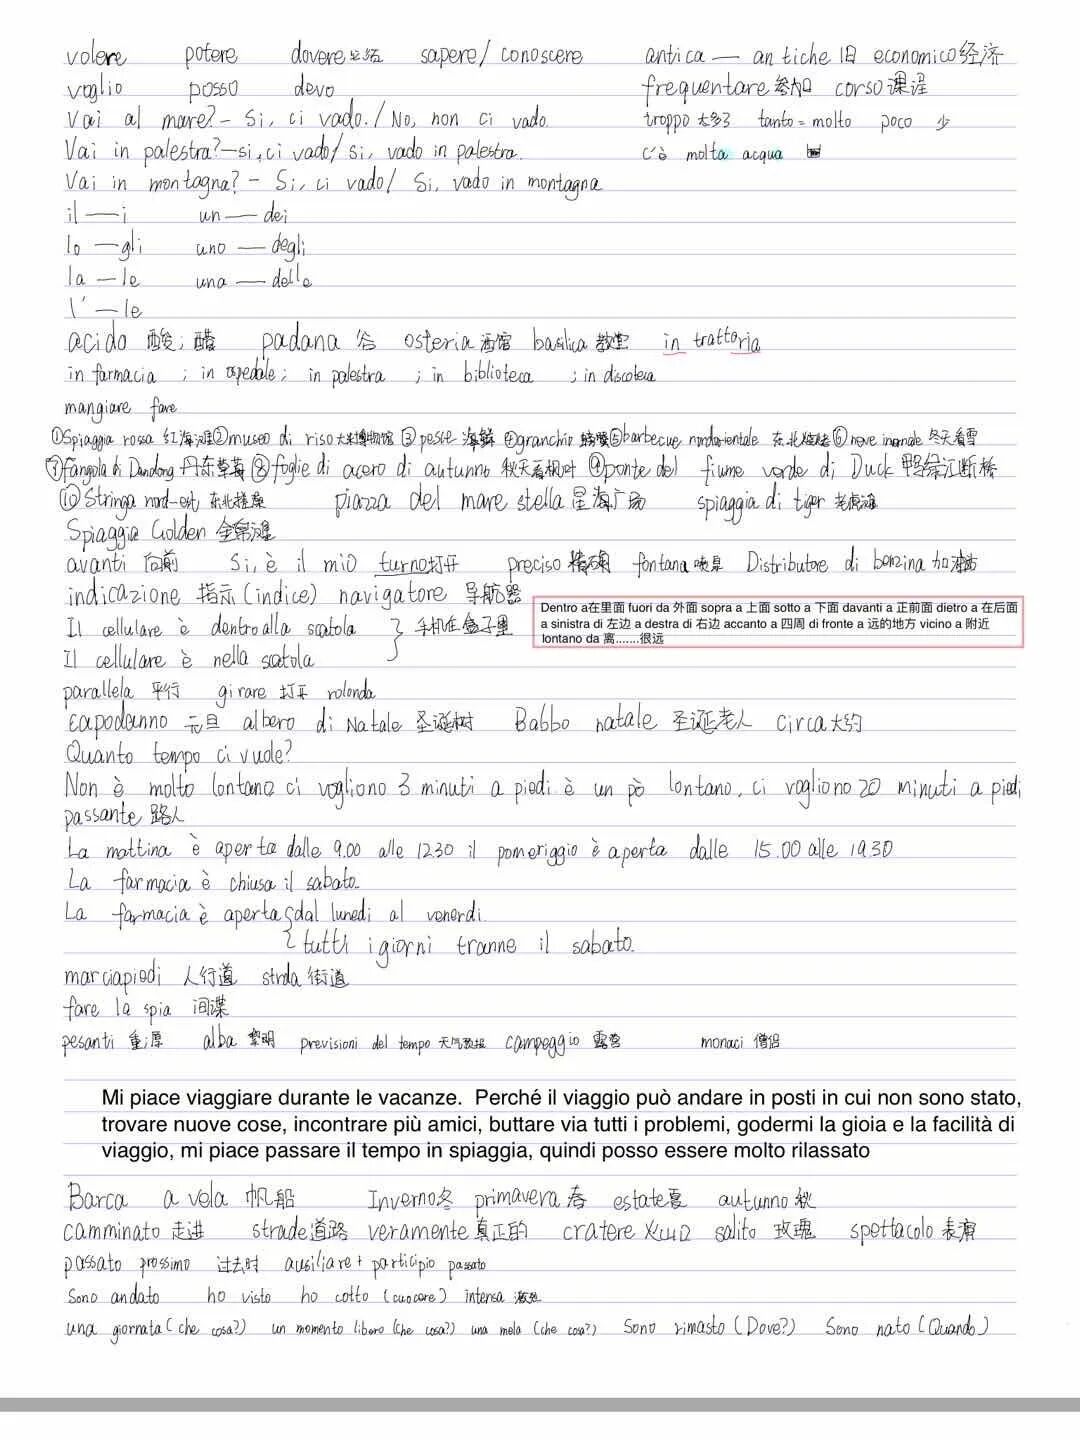 volere potere dovere 必须 sapere/ conoscere antica — an tiche 旧 economico 经济
voglio posso devo frequentare 参加 corso 课程
Vai al mare? - Si, ci vado. / No, non ci vado. troppo 太多了 tanto = molto poco 少
Vai in palestra? — si, ci vado/ si, vado in palestra. c'è molta acqua
Vai in montagna? - Si, ci vado/ Si, vado in montagna
il — i un — dei
lo — gli uno — degli
la — le una — delle
l' — le
acido 酸; 醋 padana 谷 osteria 酒馆 basilica 教堂 in trattoria
in farmacia ; in ospedale ; in palestra ; in biblioteca ; in discoteca
mangiare fare
①Spiaggia rossa 红海滩 ②museo di riso 大米博物馆 ③ pesce 海鲜 ④granchio 螃蟹 ⑤barbecue nordorientale 东北烧烤 ⑥ neve invernale 冬天看雪
⑦fangola di Dandong 丹东草莓 ⑧ foglie di acero di autunno 秋天看枫叶 ⑨ponte del fiume verde di Duck 鸭绿江断桥
⑩ Stringa nord-est 东北 piazza del mare stella 星海广场 spiaggia di tiger 老虎滩
Spiaggia Golden 金石滩
avanti 向前 Si, è il mio turno 打开 preciso 精确 fontana 喷泉 Distributore di benzina 加油站
indicazione 指示 (indice) navigatore 导航器
Dentro a在里面 fuori da 外面 sopra a 上面 sotto a 下面 davanti a 正前面 dietro a 在后面
a sinistra di 左边 a destra di 右边 accanto a 四周 di fronte a 远的地方 vicino a 附近
lontano da 离.......很远
Il cellulare è dentro alla scatola } 手机在盒子里
Il cellulare è nella scatola
parallela 平行 girare 打开 rotonda
capodanno 元旦 albero di Natale 圣诞树 Babbo natale 圣诞老人 circa 大约
Quanto tempo ci vuole?
Non è molto lontano ci vogliono 3 minuti a piedi è un pò lontano, ci vogliono 20 minuti a piedi
passante 路人
La mattina è aperta dalle 9.00 alle 12.30 il pomeriggio è aperta dalle 15.00 alle 19.30
La farmacia è chiusa il sabato.
La farmacia è aperta { dal lunedi al venerdi.
{ tutti i giorni tranne il sabato.
marciapiedi 人行道 strda 街道
fare la spia 间谍
pesanti 重 alba 黎明 previsioni del tempo 天气预报 campeggio 露营 monaci 僧侣
Mi piace viaggiare durante le vacanze. Perché il viaggio può andare in posti in cui non sono stato,
trovare nuove cose, incontrare più amici, buttare via tutti i problemi, godermi la gioia e la facilità di
viaggio, mi piace passare il tempo in spiaggia, quindi posso essere molto rilassato
Barca a vela 帆船 Inverno 冬 primavera 春 estate 夏 autunno 秋
camminato 走进 strade 道路 veramente 真正的 cratere 火山口 salito 玫瑰 spettacolo 表演
passato prossimo 过去时 ausiliare + participio passato
Sono andato ho visto ho cotto (cuocere) intensa
una giornata (che cosa?) un momento libero (che cosa?) una mela (che cosa?) Sono rimasto (Dove?) Sono nato (Quando)